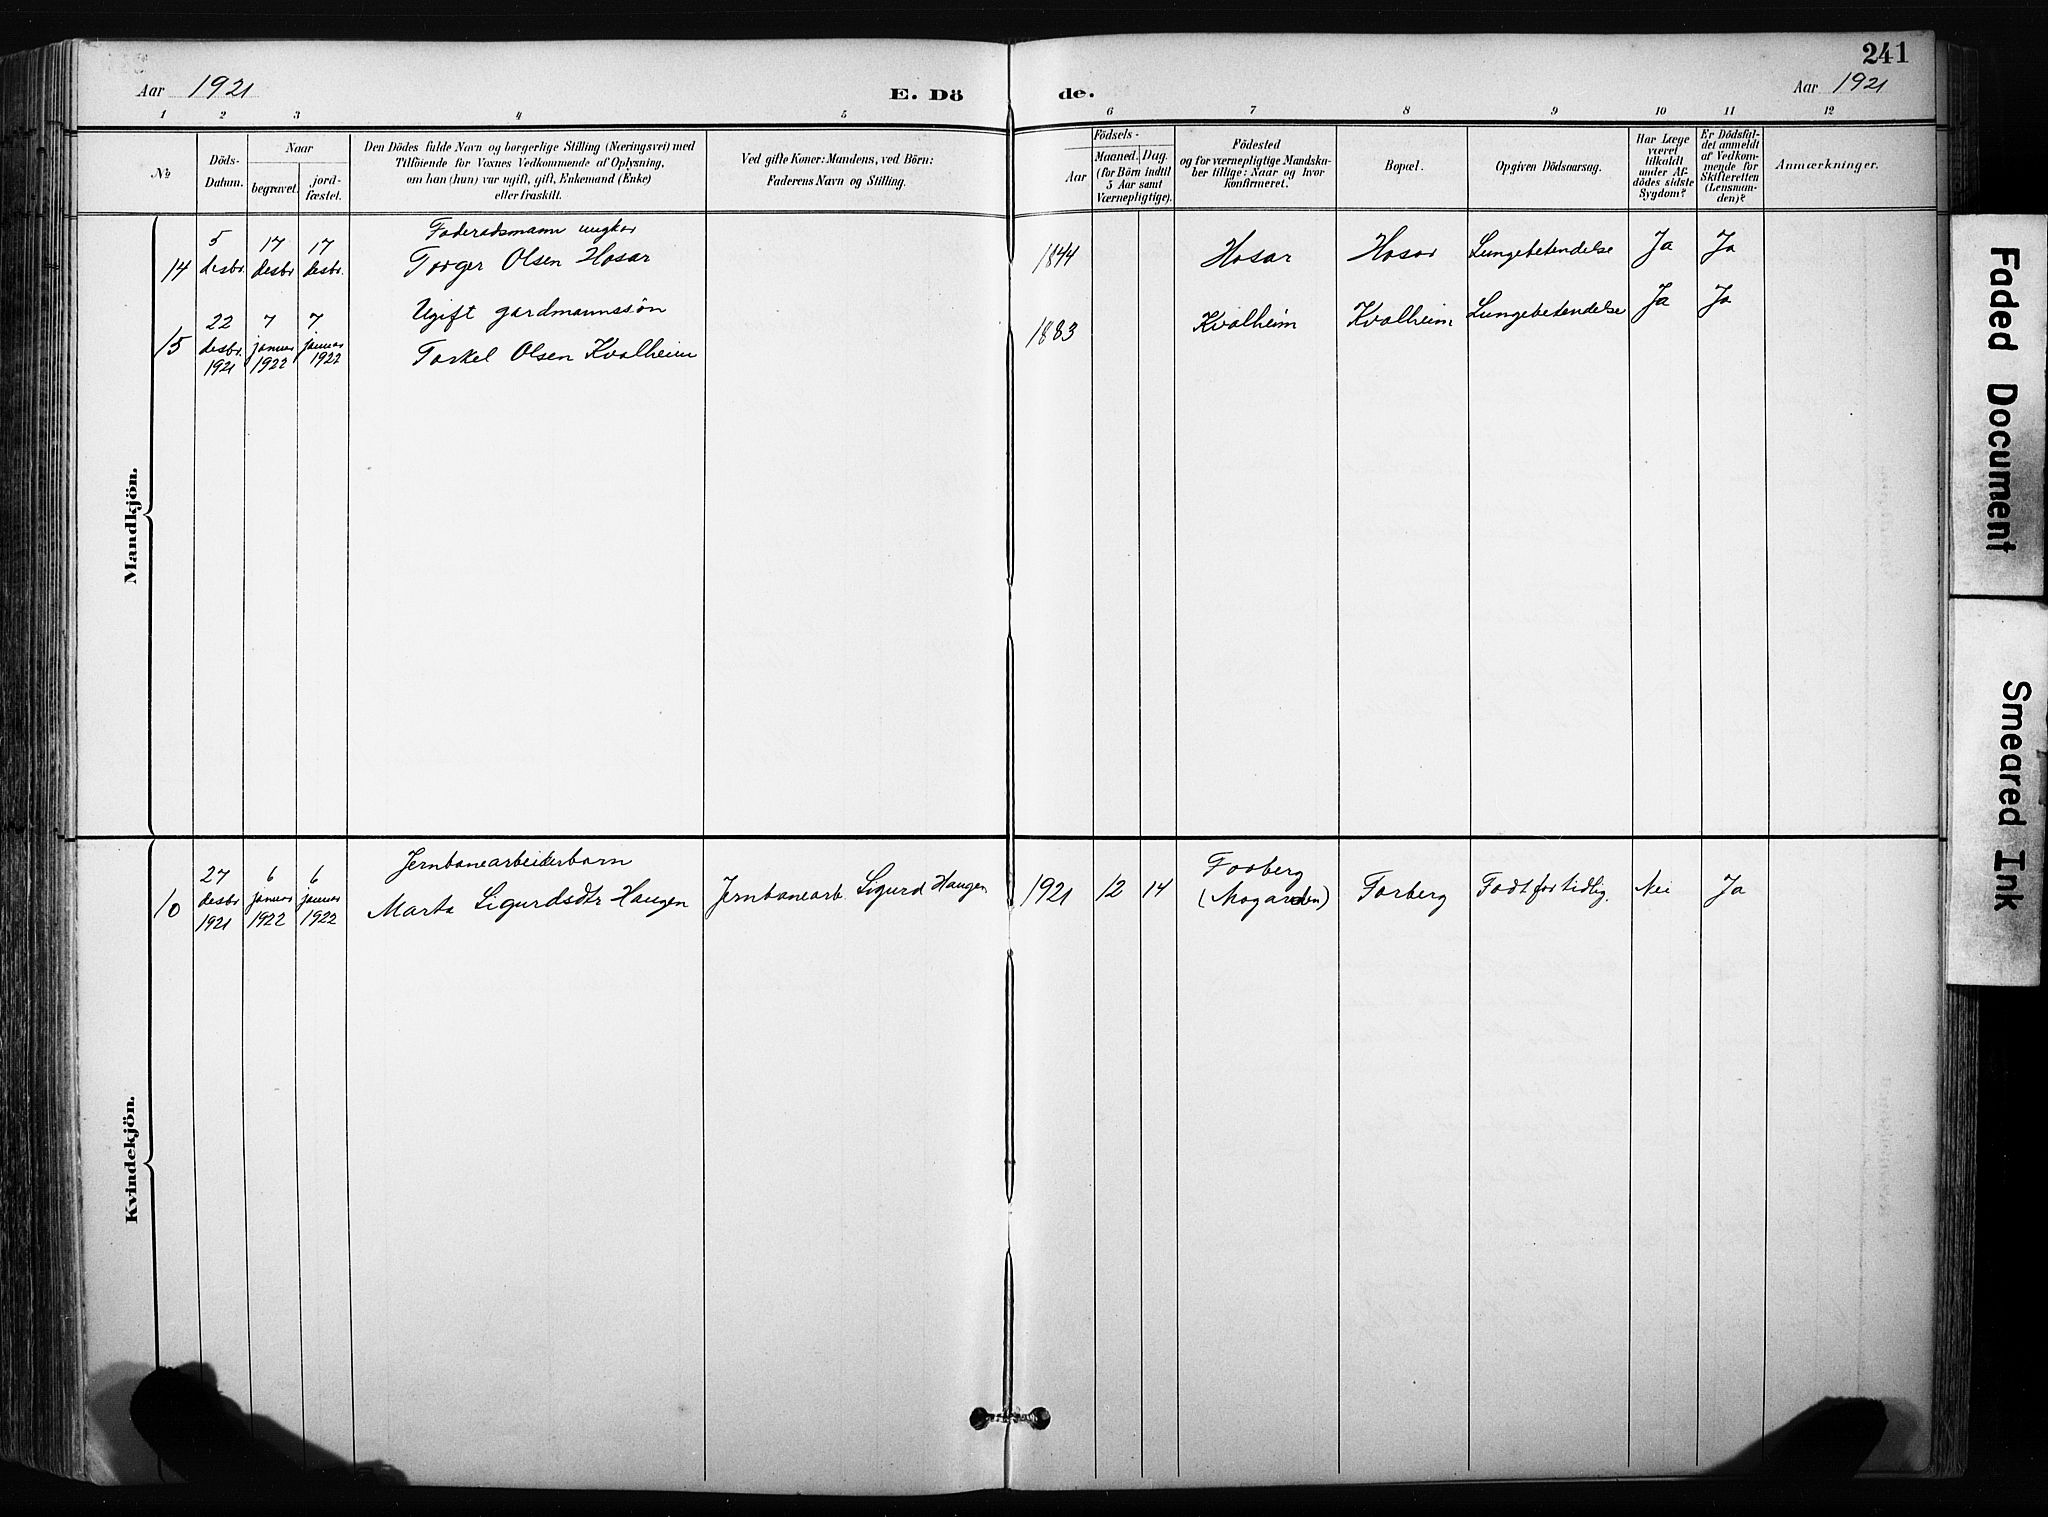 241
Aar 1921
E. Dö
de.
Aar 1921
1 2 3 4 5 6 7 8 9 10 11 12
№
Döds-
Datum.
Naar
begravet.
jord-
fæstet.
Den Dödes fulde Navn og borgerlige Stilling (Næringsvei) med
Tilföiende for Voxnes Vedkommende af Oplysning,
om han (hun) var ugift, gift, Enkemand (Enke)
eller fraskilt.
Ved gifte Koner: Mandens, ved Börn:
Faderens Navn og Stilling.
Födsels-
Aar
Maaned.
Dag.
(for Börn indtil
5 Aar samt
Værnepligtige).
Födested
og for værnepligtige Mandska-
ber tillige: Naar og hvor
konfirmeret.
Bopæl.
Opgiven Dödsaarsag.
Har Læge
været
tilkaldt
under Af-
dödes sidste
Sygdom?
Er Dödsfal-
det anmeldt
af Vedkom-
mende for
Skifteretten
(Lensman-
den)?
Anmærkninger.
Mandkjön.
14
5
desbr.
17
desbr
17
desbr.
Foderadsmann ungkar
Torger Olsen Hosar
1844
Hosar
Hosar
Lungebetendelse
Ja
Ja
15
22
desbr.
1921
7
januar
1922
7
januar
1922
Ugift gardmannssön
Torkel Olsen Kvalheim
1883
Kvalheim
Kvalheim
Lungebetendelse
Ja
Ja
Kvindekjön.
10
27
desbr
1921
6
januar
1922
6
januar
1922
Jernbanearbeiderbarn
Marta Sigurdsdtr Haugen
Jernbanearb. Sigurd Haugen
1921
12
14
Forberg
(Mogarden)
Forberg
Født for tidlig.
Nei
Ja
Faded Document
Smeared Ink